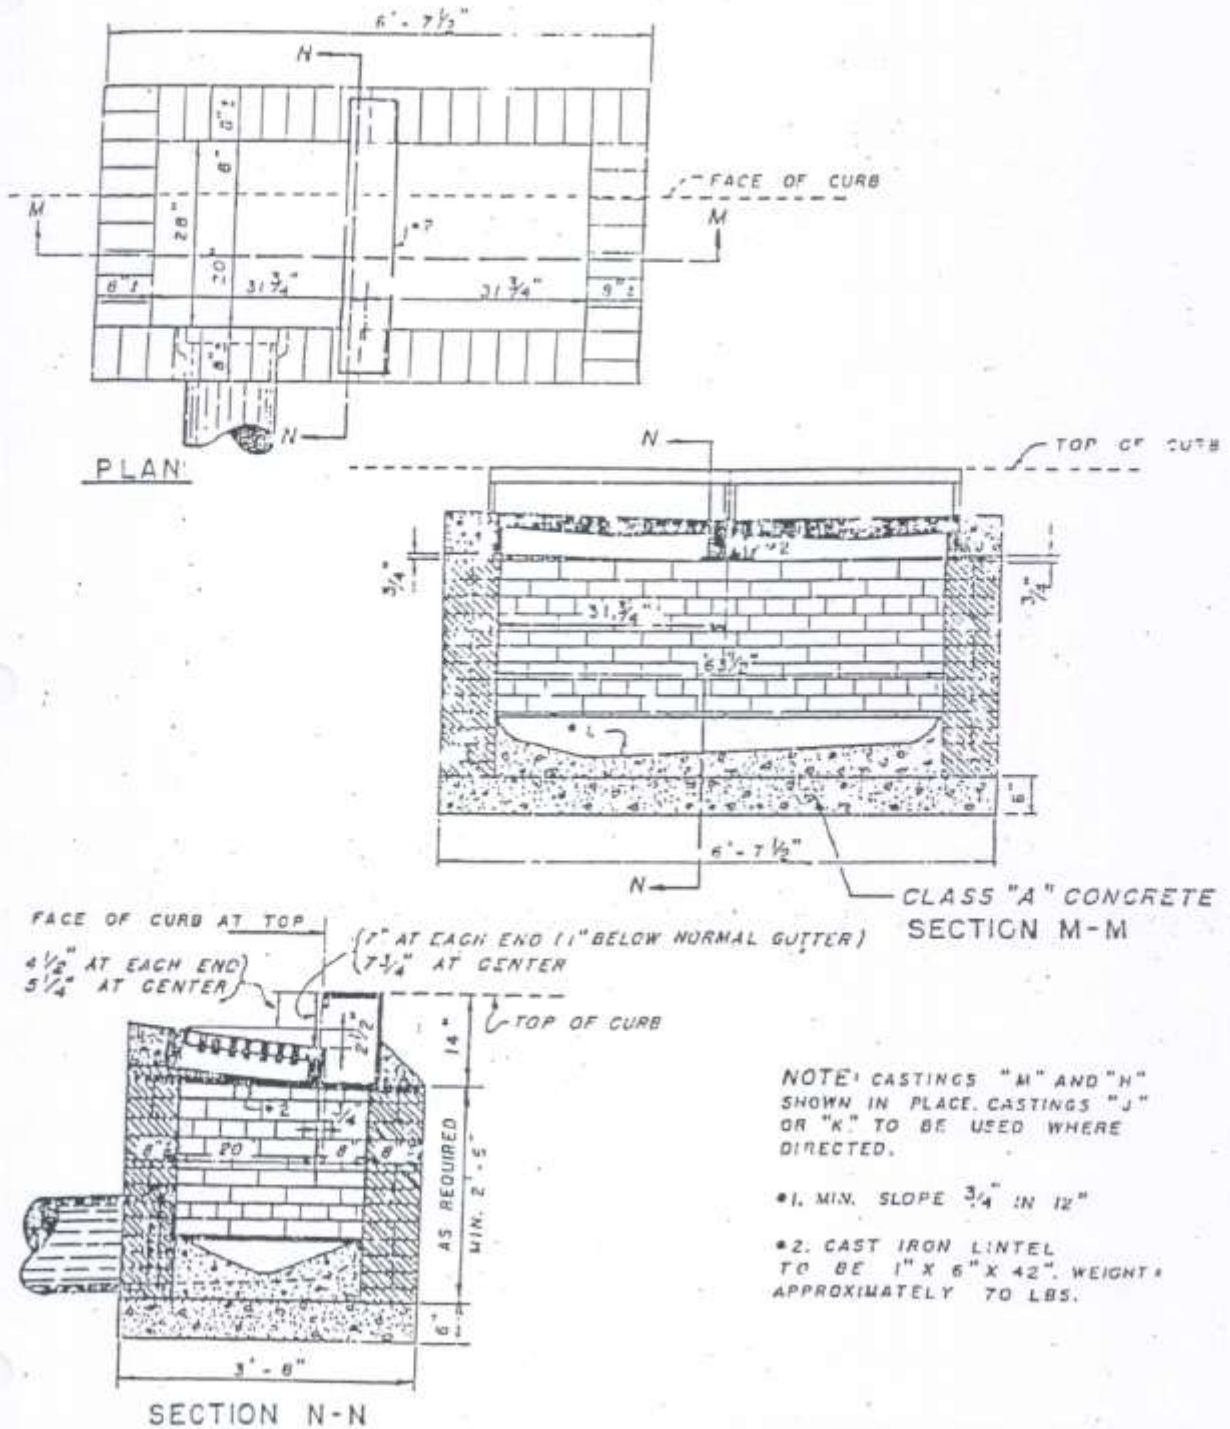 6' - 7 1/2"
N
8" ±
8"
FACE OF CURB
M
M
28"
20"
8" ±
31 3/4"
31 3/4"
8" ±
N
PLAN
N
TOP OF CURB
*2
3/4"
3/4"
31 3/4"
63 1/2"
6"
6' - 7 1/2"
N
CLASS "A" CONCRETE
SECTION M-M
FACE OF CURB AT TOP
7" AT EACH END (1" BELOW NORMAL GUTTER)
7 3/4" AT CENTER
4 1/2" AT EACH END
5 1/4" AT CENTER
TOP OF CURB
2 1/2"
14"
*2
3/4"
8" ±
20"
8"
8"
AS REQUIRED
MIN. 2' - 5"
6"
3' - 8"
SECTION N-N
NOTE: CASTINGS "M" AND "H"
SHOWN IN PLACE. CASTINGS "J"
OR "K" TO BE USED WHERE
DIRECTED.
*1. MIN. SLOPE 3/4" IN 12"
*2. CAST IRON LINTEL
TO BE 1" X 6" X 42". WEIGHT =
APPROXIMATELY 70 LBS.